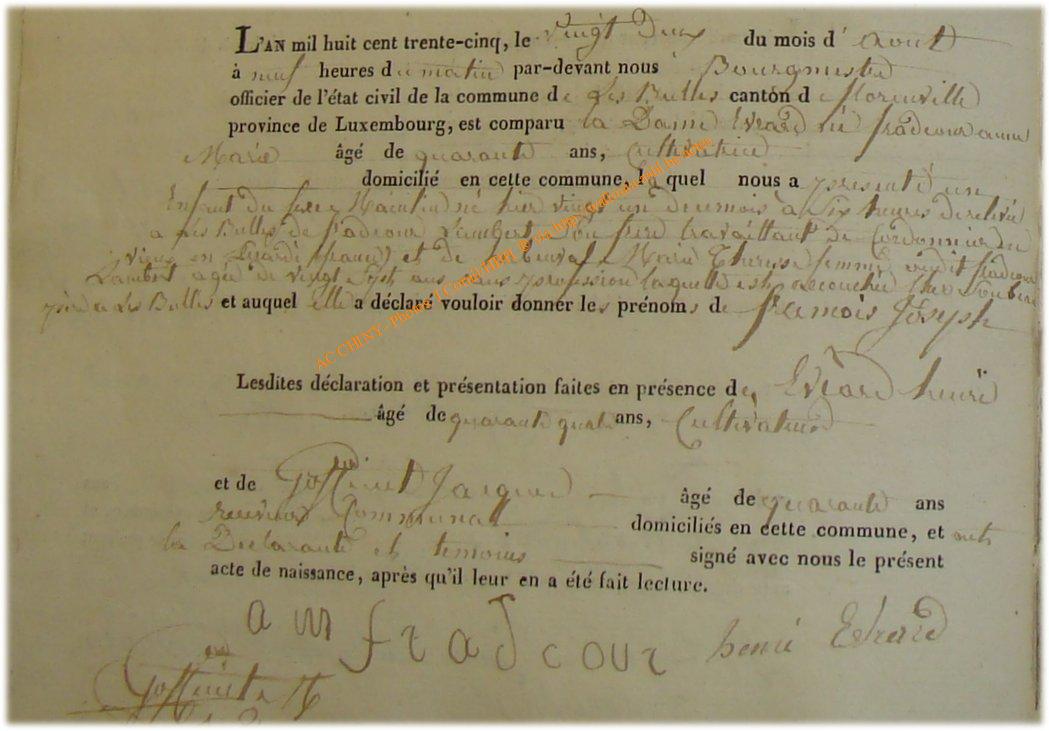 L'AN mil huit cent trente-cinq, le vingt deux du mois d'aout
à neuf heures du matin par-devant nous Bourgmestre
officier de l'état civil de la commune de Les Bulles canton de florenville
province de Luxembourg, est comparu la Dame Evrard né fradcour anne
Marie âgé de quarante ans, Cultivatrice
domicilié en cette commune, laquel nous a présenté un
Enfant du sexe Masculin né hier vingt un du mois à six heures
a Les Bulles de fradcour Lambert son frere travaillant de Cordonnier
et de Marie Therese femme fradcour
Lambert agée de vingt sept ans sans profession laquelle est accouchée chez
père a Les Bulles et auquel elle a déclaré vouloir donner les prénoms de francois Joseph
Lesdites déclaration et présentation faites en présence de Evrard henri
âgé de quarante quatre ans, Cultivateur
et de Goffinet Jacques âgé de quarante ans
receveur Communal domiciliés en cette commune, et ont
la Declarante et temoins signé avec nous le présent
acte de naissance, après qu'il leur en a été fait lecture.
a m fradcour henri Evrard
Goffinet
AC CHINY - Photos